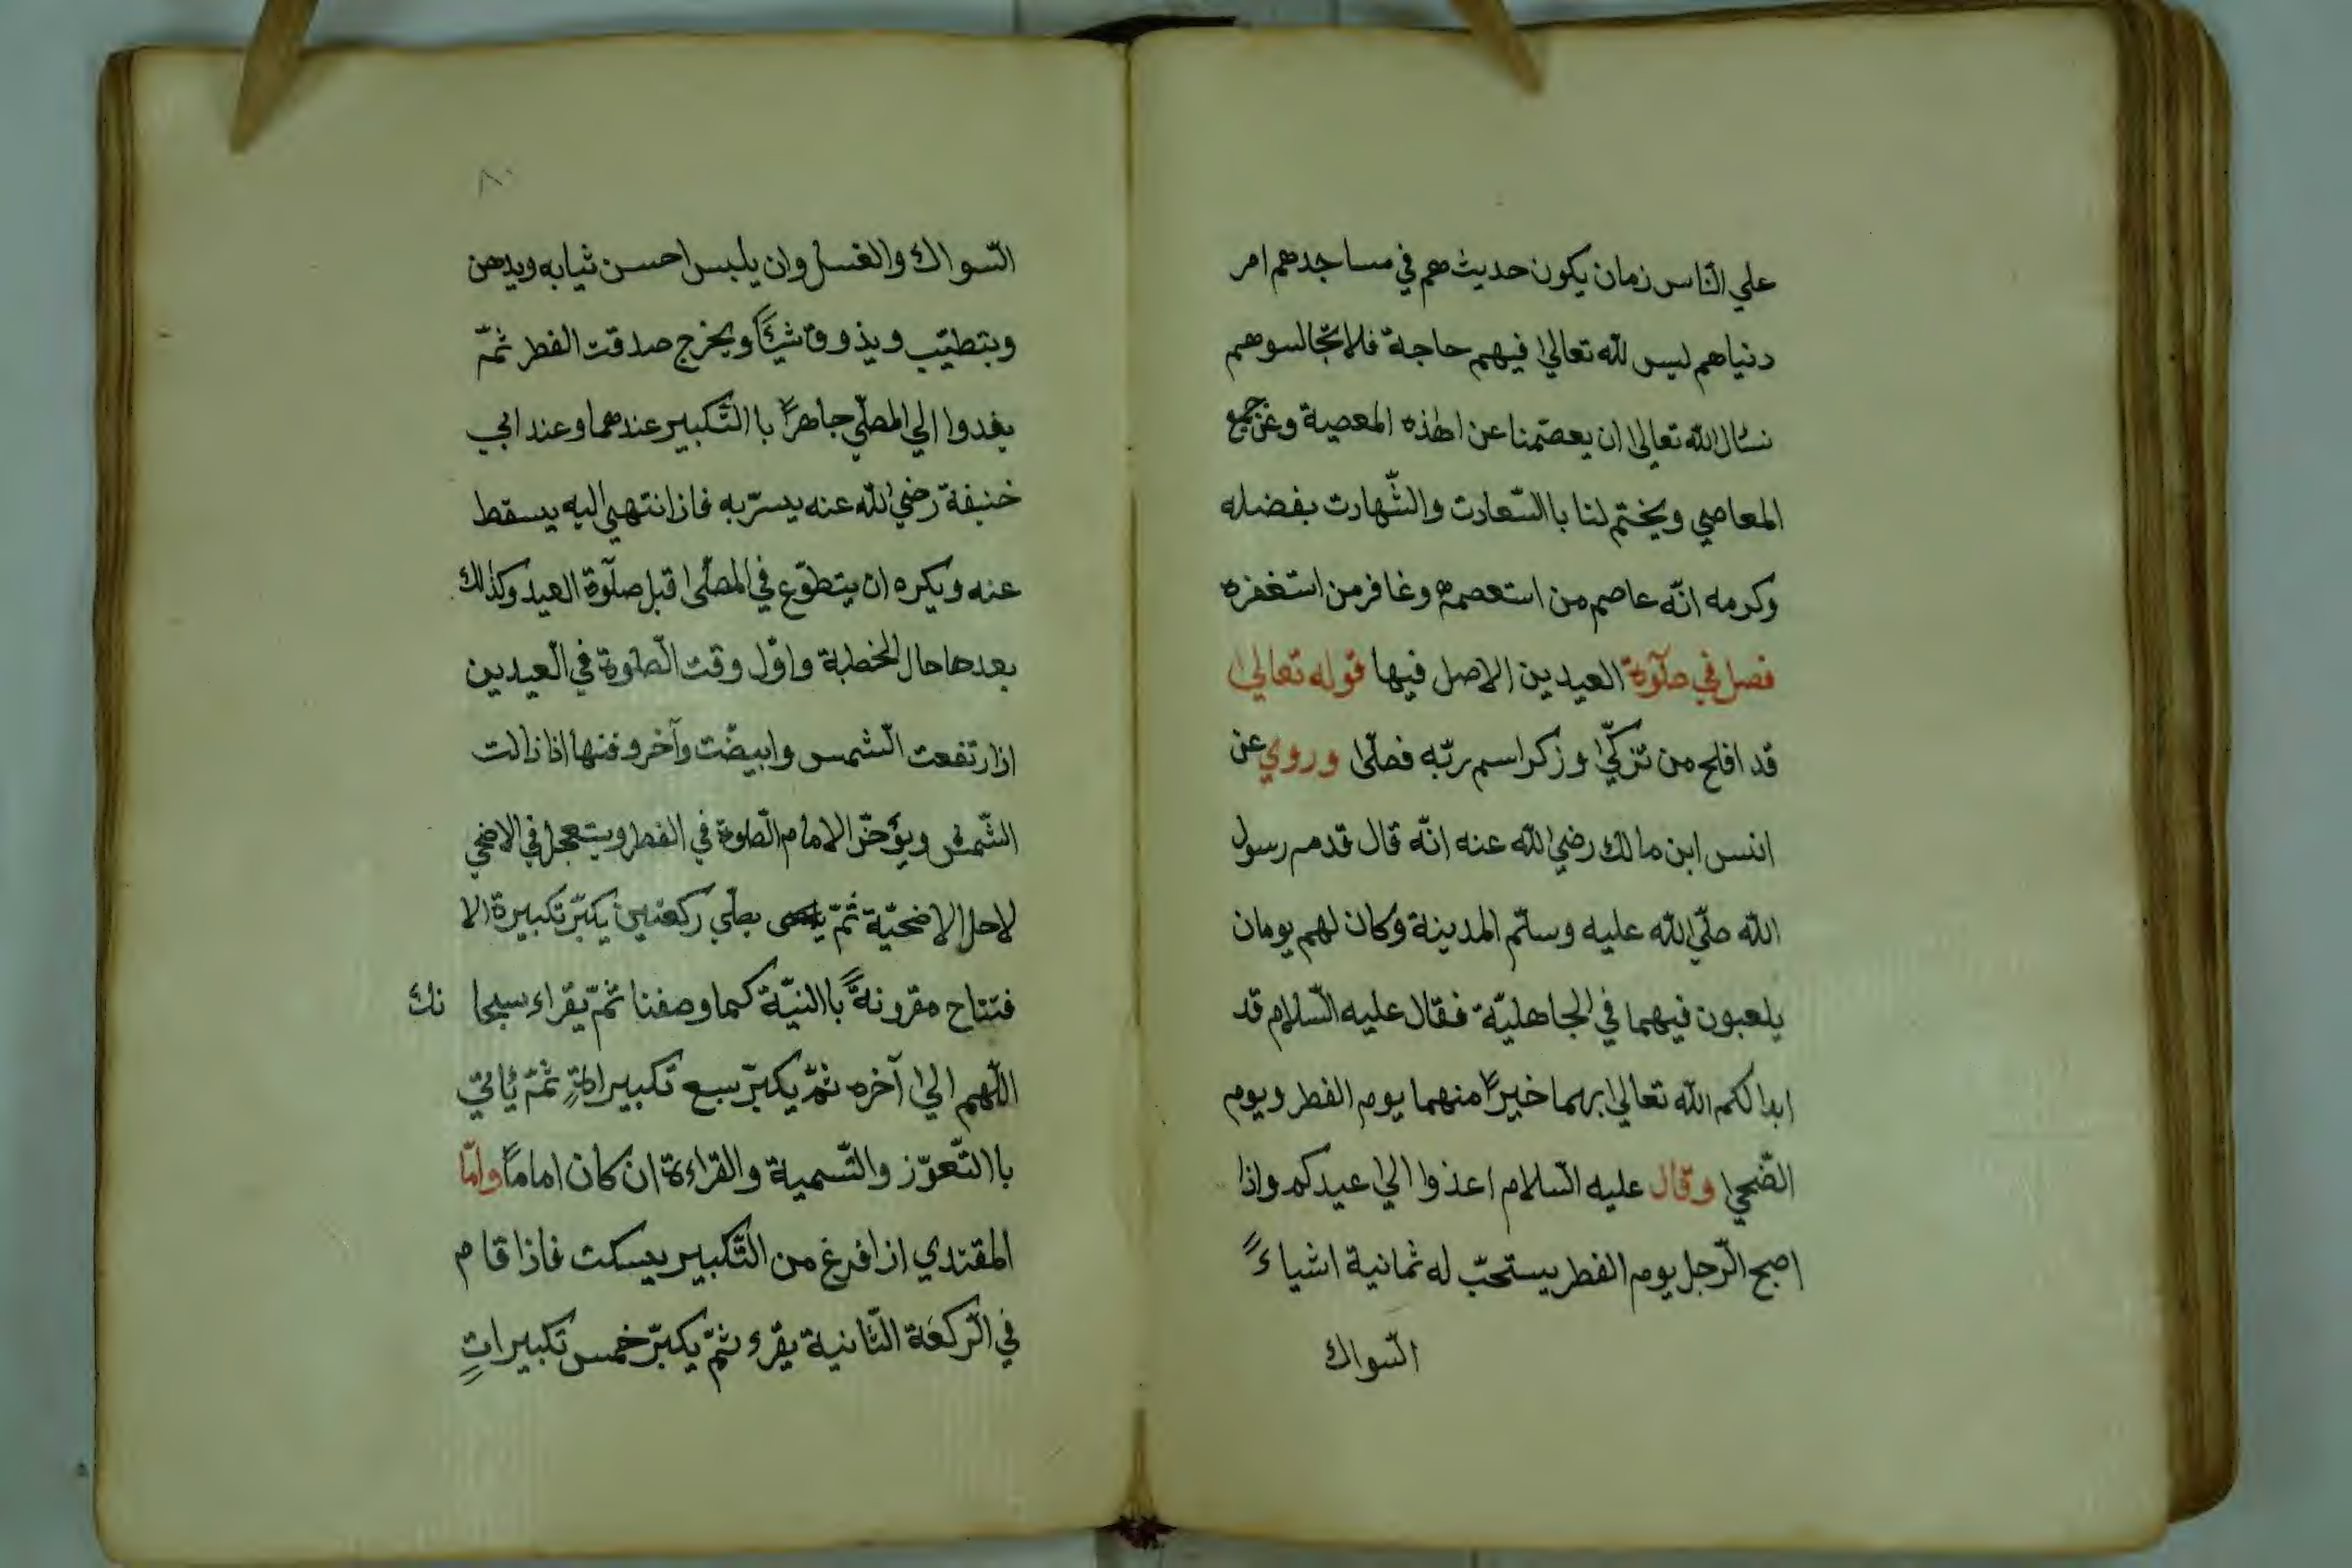 علي النّاس زمان يكون حديث هم في مساجدهم امر
دنياهم ليس للّه تعالىٰ فيهم حاجة فلا تجّالسوهم
نسٔال اللّه تعالىٰ ان يعصمنا عن اهٰذه المعصية وعن جميع
المعاصي ويختم لنا باالسّعادت والشّهادت بفضله
وكرمه انّه عاصم من استعصمه وغافر من استغفره
فصل في صلٓوة العيدين الاصل فيها قوله تعالىٰ
قد افلح من تزكّىٰ وزكر اسم ربّه فصلّىٰ وروي عن
اننس ابن مالك رضي اللّه عنه انّه قال قدم رسول
اللّه صلّي اللّه عليه وسلّم المدينة وكان لهم يومان
يلعبون فيهما في الجاهليّة فقال عليه السّلام قد
ابدالكم اللّه تعالىٰ بهما خيرًا منهما يوم الفطر ويوم
الضّحىٰ وقال عليه السّلام اعذوا الىٰ عيدكم واذا
اصبح الرّجل يوم الفطر يستحبّ له ثمانية اشياءً
السّواك
٨٠
السّواك والغسل وان يلبس احسن ثيابه ويدهن
ويتطيّب ويذووق شئيًا ويخرج صدقت الفطر ثمّ
يغدوا الي المصلّي جاهرًا باالتّكبير عندهما وعند ابي
حنيفة رضي اللّه عنه يسرّ به فاذا انتهي اليه يسقط
عنه ويكره ان يتطوّع في المصلّىٰ قبل صلٓوة العيد وكذٰلك
بعدها حال الخطبة واوّل وقت الصّلوة في العيدين
اذا رتفعت الشّمس وابيضّت وآخر وقتها اذا زالت
الشّمس ويؤخّر الامام الصّلوة في الفطر ويتعجل في الاضحي
لاجل الاضحيّة ثمّ يصلّي ركعتين يكبّر تكبيرة الا
فتتاح مقرونةً باالنيّة كما وصفنا ثمّ يقراء سبحا نك
اللّهم الىٰ آخره ثمّ يكبّر سبع تكبيراتٍ ثمّ ئاتي
باالتّعوّز والتّسمية والقراءة ان كان امامًا وامّا
المقتدي اذا فرغ من التّكبير يسكت فاذا قام
في الرّكعة الثّانية يقرء ثمّ يكبّر خمس تكبيراتٍ